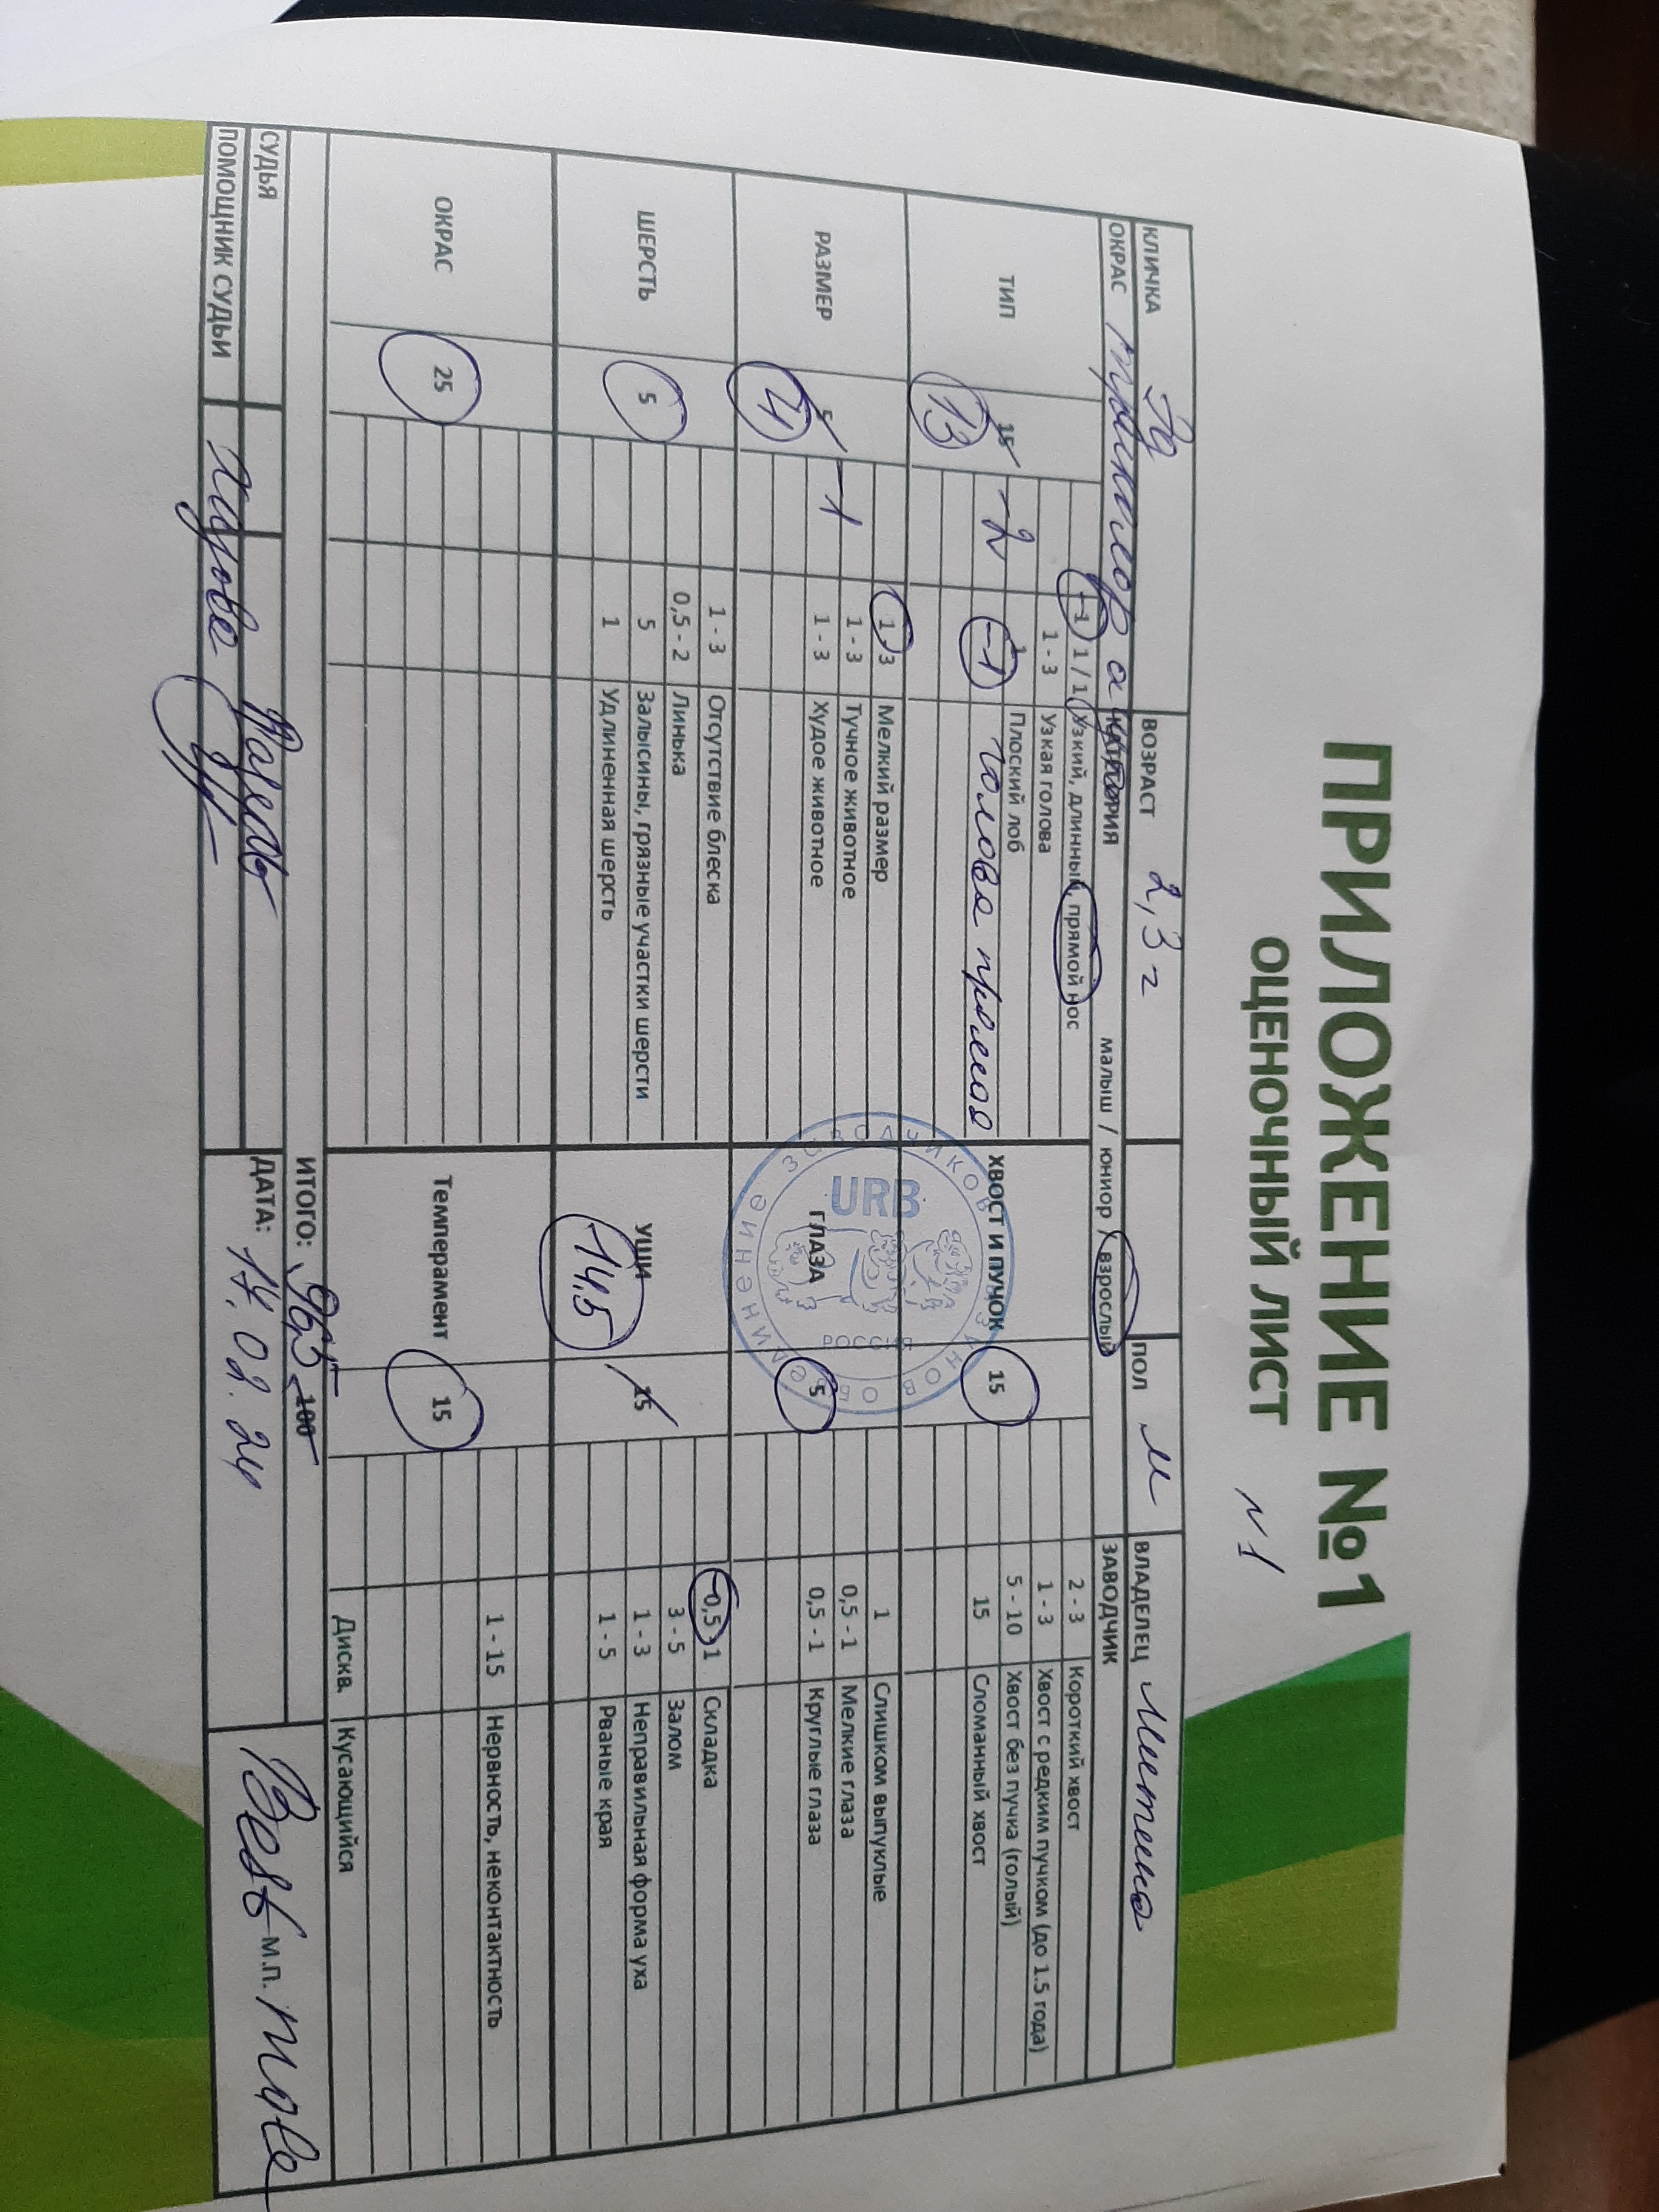 ПРИЛОЖЕНИЕ №1
ОЦЕНОЧНЫЙ ЛИСТ N1
КЛИЧКА Эд ВОЗРАСТ 2,3 г ПОЛ м ВЛАДЕЛЕЦ Митина
ОКРАС триколор агути КАТЕГОРИЯ малыш / юниор / взрослый ЗАВОДЧИК
ТИП 15 13 -2
-1 1 / 1 Узкий, длинный, прямой нос
1 - 3 Узкая голова
1 Плоский лоб
-1 голова прямая
РАЗМЕР 5 4 -1
1 - 3 Мелкий размер
1 - 3 Тучное животное
1 - 3 Худое животное
ШЕРСТЬ 5
1 - 3 Отсутствие блеска
0,5 - 2 Линька
5 Залысины, грязные участки шерсти
1 Удлиненная шерсть
ОКРАС 25
ХВОСТ И ПУЧОК 15
2 - 3 Короткий хвост
1 - 3 Хвост с редким пучком (до 1.5 года)
5 - 10 Хвост без пучка (голый)
15 Сломанный хвост
ГЛАЗА 5
1 Слишком выпуклые
0,5 - 1 Мелкие глаза
0,5 - 1 Круглые глаза
УШИ 15 14,5
-0,5 1 Складка
3 - 5 Залом
1 - 3 Неправильная форма уха
1 - 5 Рваные края
Температмент 15
1 - 15 Нервность, неконтактность
Дискв. Кусающийся
URB
РОССИЯ
ИТОГО: 96,5 100
СУДЬЯ
ПОМОЩНИК СУДЬИ
ДАТА: 17.02.24
Best м.п. male